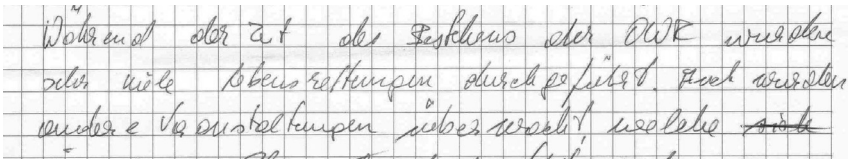 Während der Zeit des Bestehens der OWR wurden
sehr viele Lebensrettungen durchgeführt. Auch wurden
andere Veranstaltungen überwacht, welche